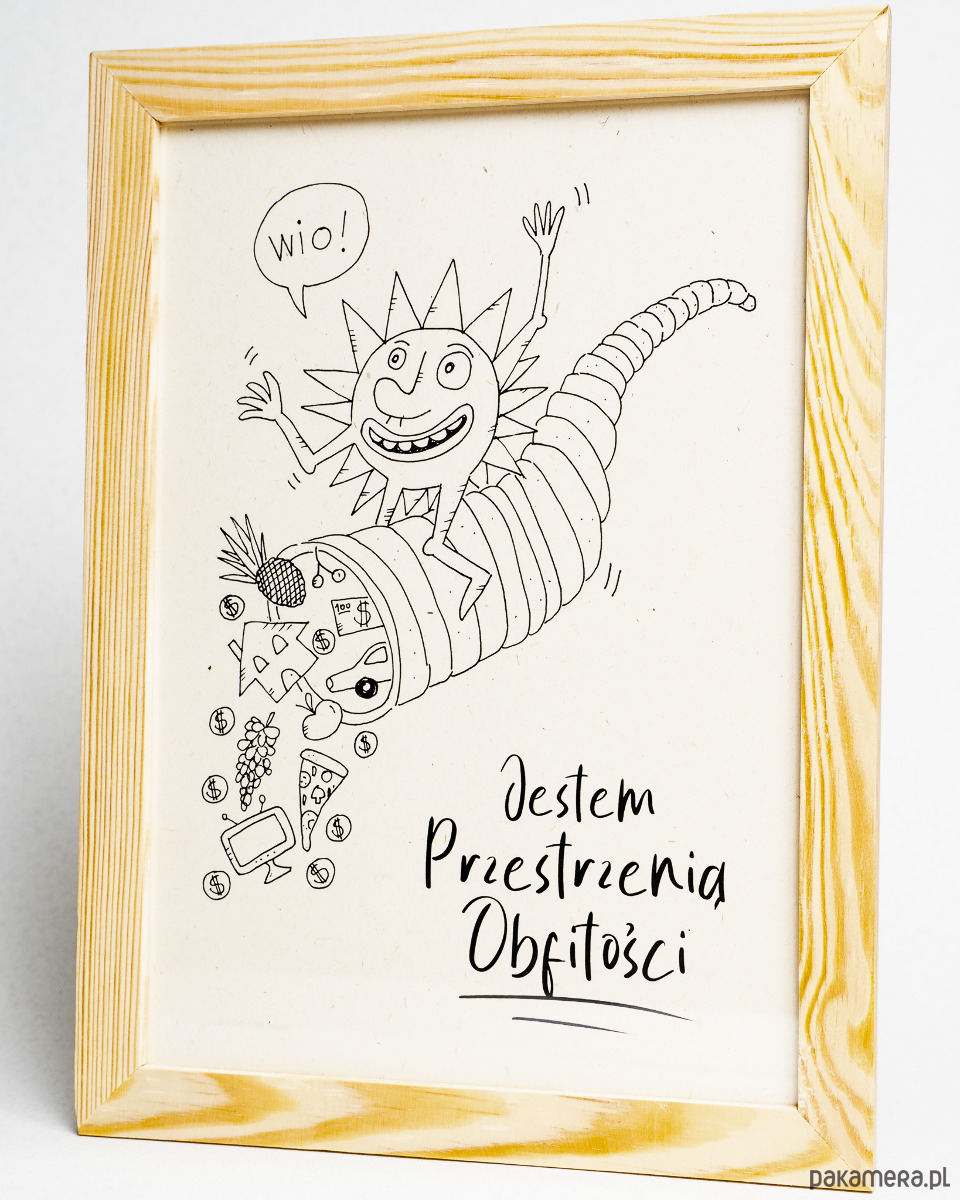 wio!
100 $
$
$
$
$
$
$
$
$
Jestem
Przestrzenią
Obfitości
pakamera.pl